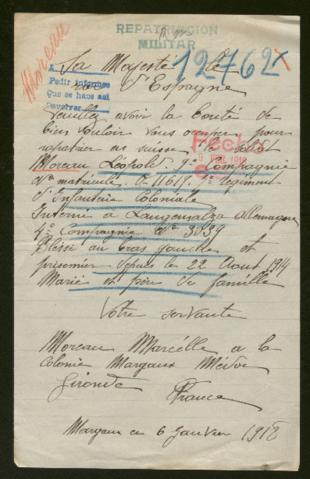 REPATRIACION
MILITAR
Moreau
12762
Sa Majesté le
Pedir informes
Que se haga así
d'Espagne
veuillez avoir la bonté de
bien vouloir vous occuper pour
rapatrier en suisse le soldat
Moreau Léopold 7e Compagnie
No matricule 0-11619. 7e régiment
d'Infanterie Coloniale
Interné à Langensalza Allemagne
4e Compagnie No 3839
Blessé au bras gauche et
prisonnier depuis le 22 Aout 1914
Marié et père de famille
Votre servante
Moreau Marcelle a la
Colonie Margaux Médoc
Gironde
France
Margaux ce 6 Janvier 1918